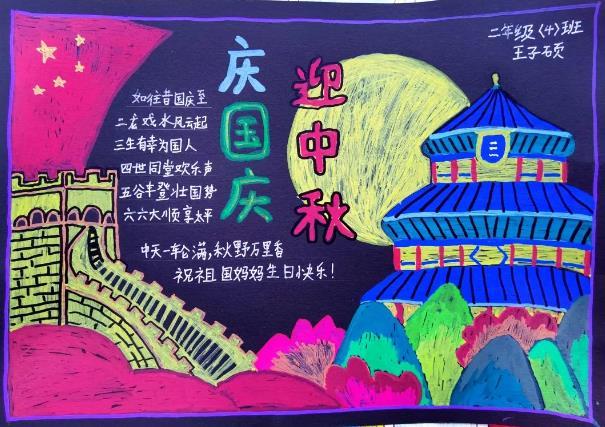 二年级(4)班
王子硕
庆国庆
迎中秋
如往昔国庆至
二龙戏水风云起
三生有幸为国人
四世同堂欢乐声
五谷丰登壮国梦
六六大顺享太平
中天一轮满,秋野万里香
祝祖国妈妈生日快乐!